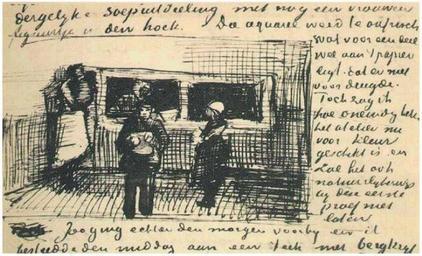 dergelijke soepuitdeeling met nog een vrouwen
figuurtje in den hoek. De aquarel werd te
wat voor een deel
wel aan 't papier
ligt. dat er niet
voor deugde.
Toch zag ik
hoe oneindig beter
het atelier nu
voor kleur
geschikt is en
zal het ook
natuurlijkerwijs
bij deze eerste
proef niet
laten
Zoo ging echter den morgen voorby en ik
besteedde den middag aan een met bergkryt